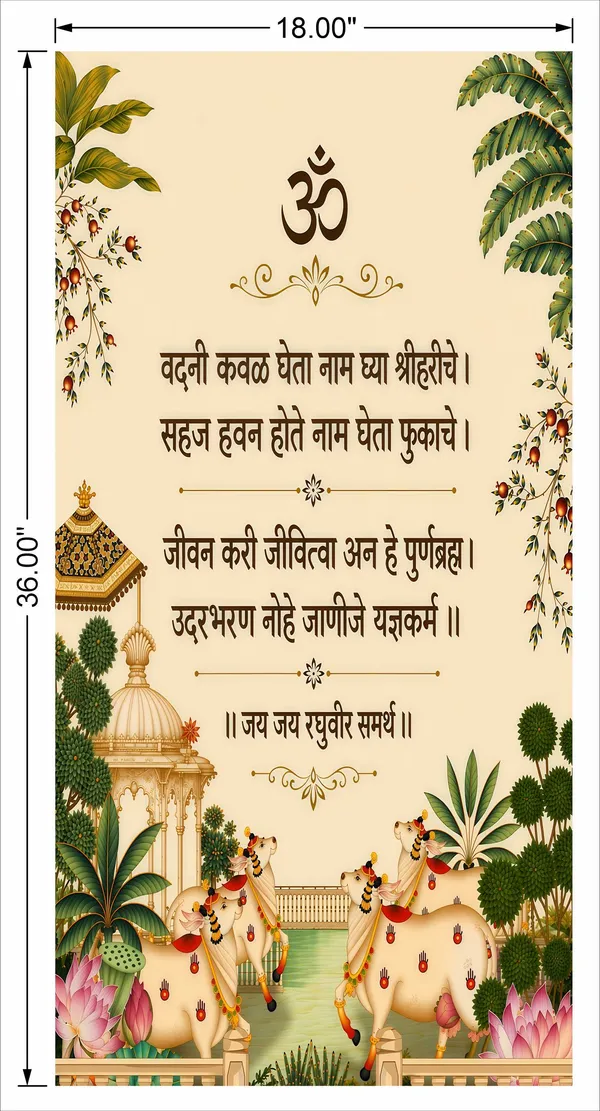 18.00"
36.00"
ॐ
वदनी कवळ घेता नाम घ्या श्रीहरीचे।
सहज हवन होते नाम घेता फुकाचे।
जीवन करी जीवित्वा अन हे पुर्णब्रह्म।
उदरभरण नोहे जाणीजे यज्ञकर्म ॥
॥ जय जय रघुवीर समर्थ ॥